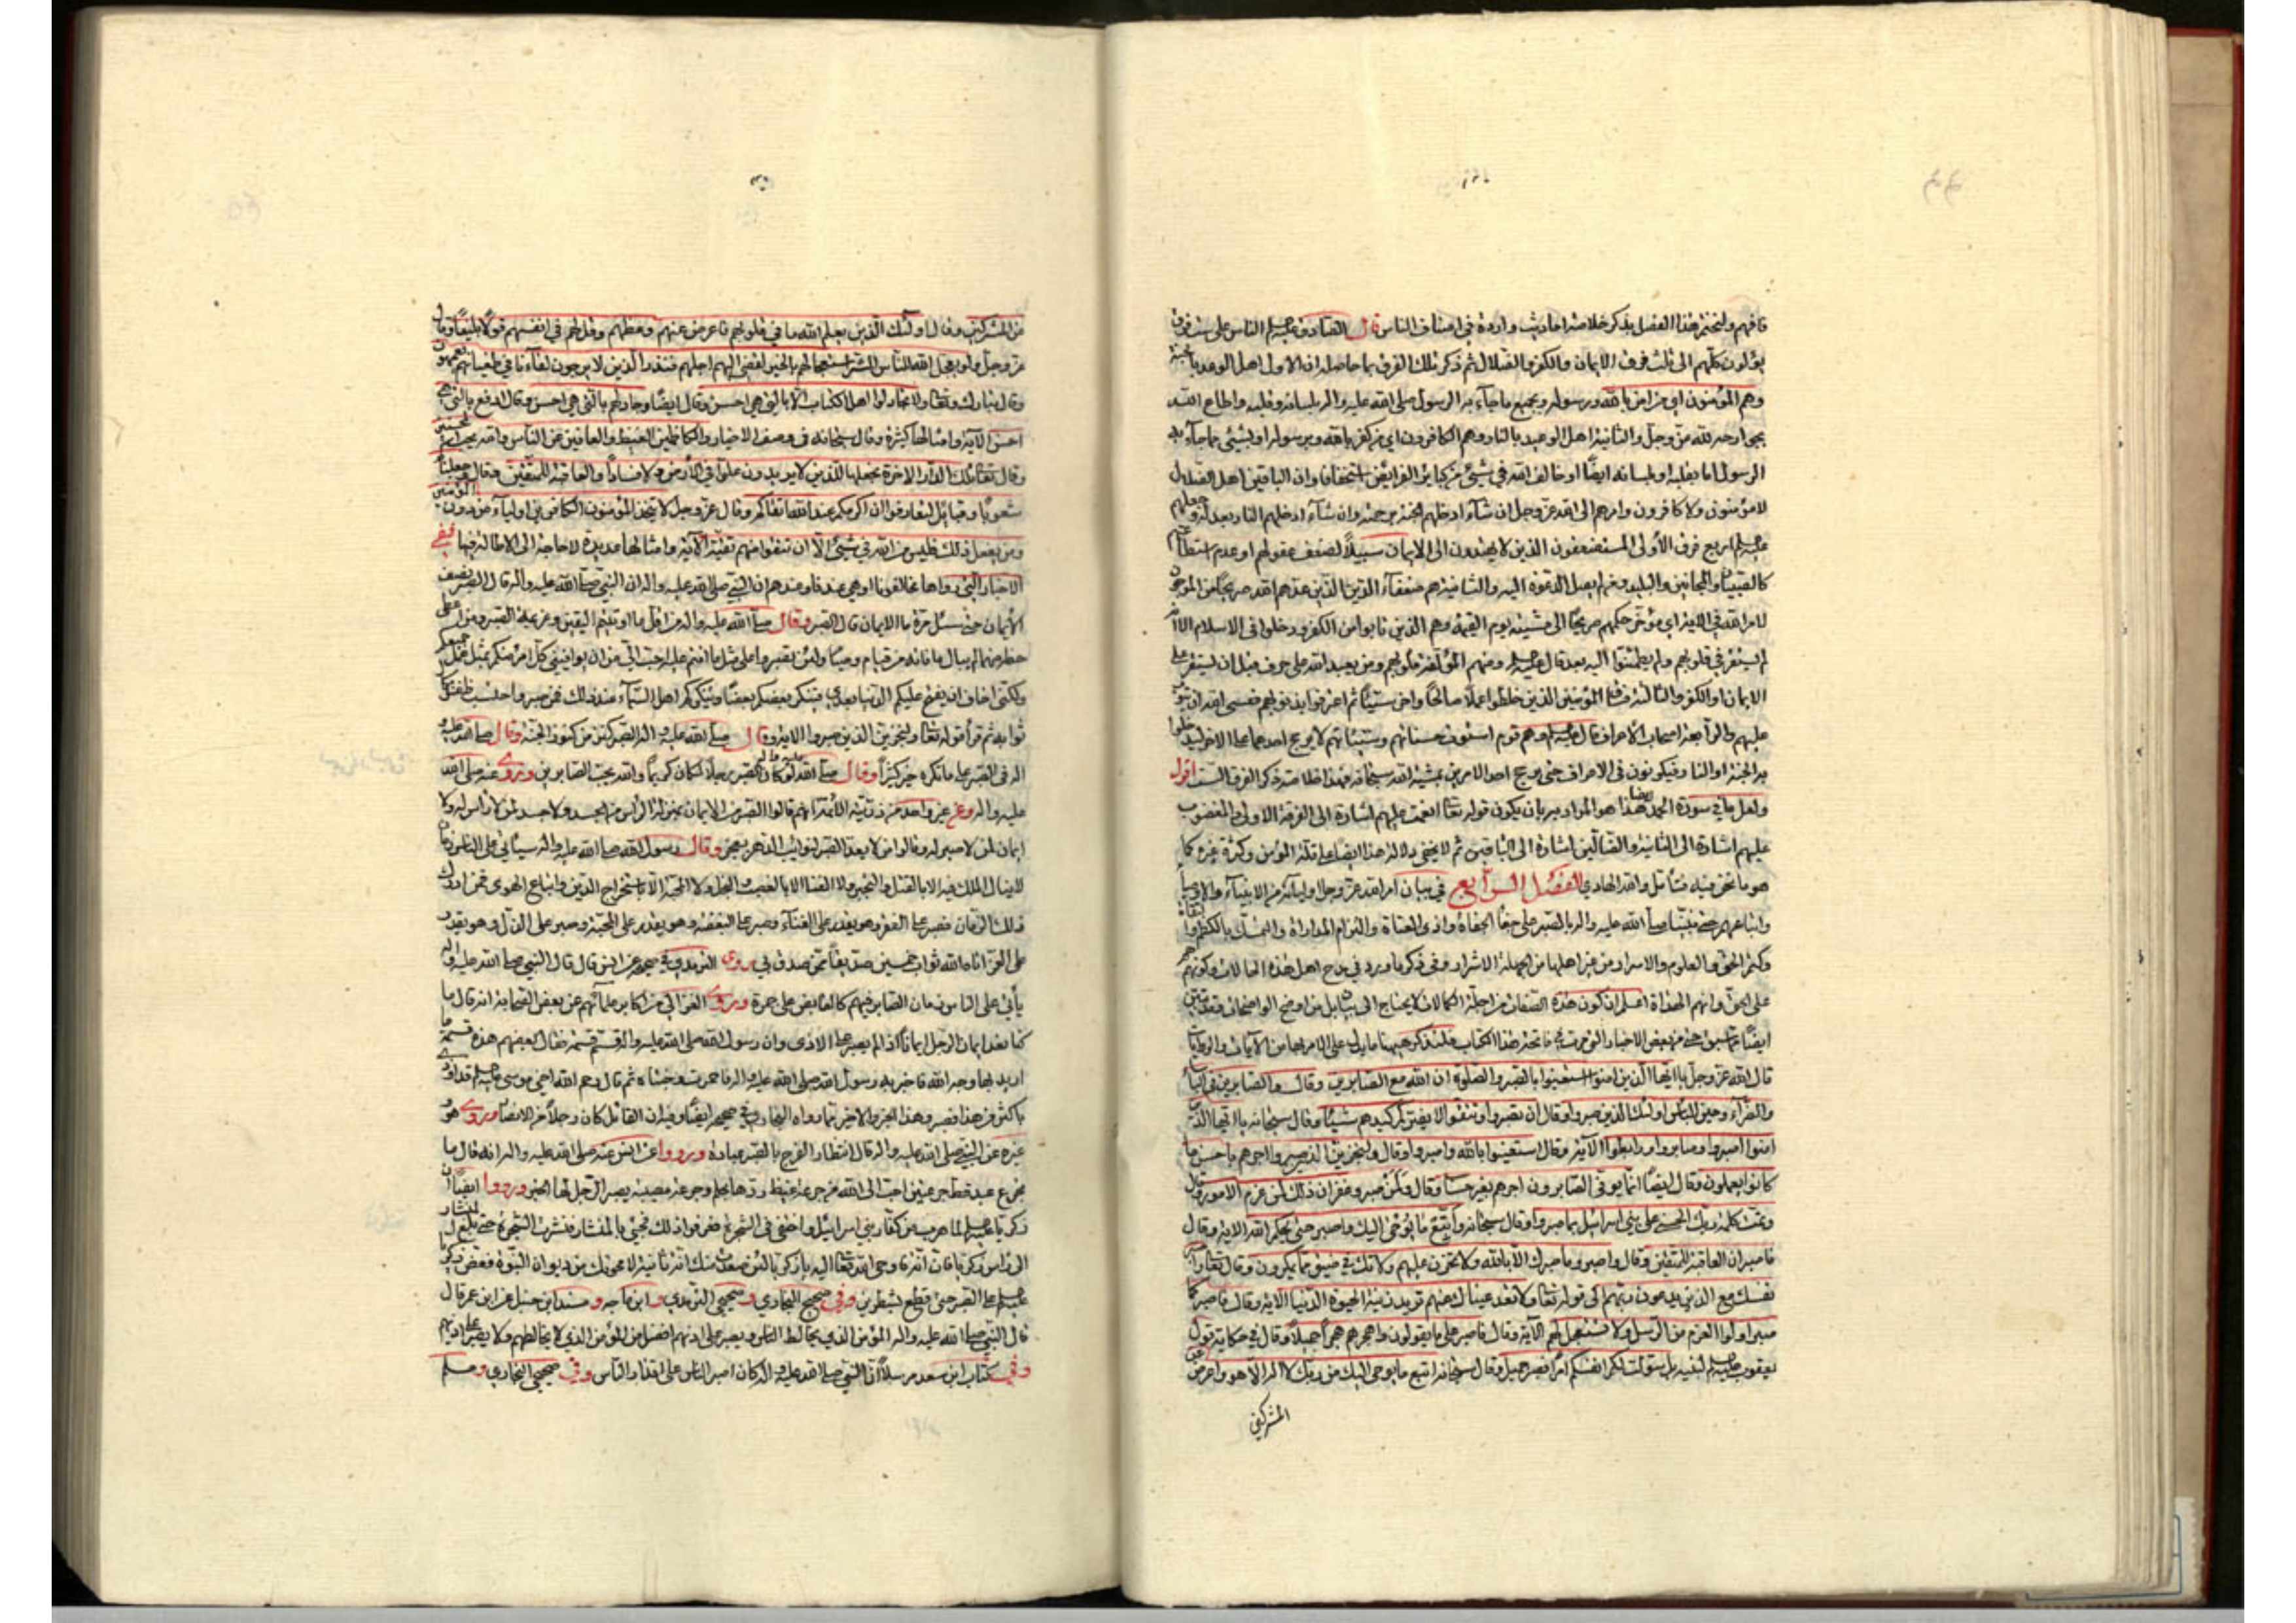 فافهم ولنختم هذا الفصل بذكر خلاصة احاديث واردة في اصناف الناس قال الصادق عليه السلم الناس على ست فرق
يؤلون كلهم الى ثلث فرق الايمان والكفر والضلال ثم ذكر تلك الفرق بما حاصله ان الاول اهل الوعد بالجنة
وهم المؤمنون اي من امن بالله ورسوله وبجميع ما جاء به الرسول صلى الله عليه واله بلسانه وقلبه واطاع الله
بجوارحه لله عز وجل والثانية اهل الوعيد بالنار وهم الكافرون اي من كفر بالله وبرسوله او بشيء مما جاء به
الرسول اما بقلبه او بلسانه ايضًا او خالف الله في شيء من كبائر الفرايض استخفافا وان الباقين اهل الضلال
لا مؤمنون ولا كافرون وامرهم الى الله عز وجل ان شآء ادخلهم الجنة برحمته وان شآء ادخلهم النار بعدله وجعلهم
عليه السلم اربع فرق الأولى المستضعفون الذين لا يهتدون الى الايمان سبيلًا لضعف عقولهم او عدم استطاعتهم
كالصبيان والمجانين والبله ومن لم يصل الدعوة اليه والثانية هم ضعفآء الدين الذين عدهم الله صريحًا من المرجون
لامر الله في الاية اي مؤخر حكمهم صريحًا الى مشيته يوم القيمة وهم الذين تابوا من الكفر ودخلوا في الاسلام الا انه
لم يستقر في قلوبهم ولم يطمئنوا اليه بعد قال عليه السلم ومنهم المؤلفة قلوبهم ومن يعبد الله على حرف قبل ان يستقر على
الايمان او الكفر والثالثة فساق المؤمنين الذين خلطوا عملًا صالحًا واخر سيئًا ثم اعترفوا بذنوبهم فعسى الله ان يتوب
عليهم والرابعة اصحاب الأعراف قال عليه السلم وهم قوم استوت حسناتهم وسيئاتهم لا يرجح احدهما على الاخر ليدخلوا
به الجنة او النار فيكونون في الاعراف حتى يرجح احد الامرين بمشية الله سبحانه فهذا خلاصة ذكر الفرق الست اقول
ولعل ما في سورة الحمد ايضا هذا هو المراد به بان يكون قوله تعا انعمت عليهم اشارة الى الفرقة الاولى والمغضوب
عليهم اشارة الى الثانية والضآلين اشارة الى الباقين ثم لا يخفى دلالة هذا ايضًا على قلة المؤمن وكثرة غيره كما
هو ما نحن فيه فتأمل والله الهادي الفصل الرابع في بيان امر الله عز وجل اوليائه من الانبياء والاوصياء
واتباعهم حتى نبينا صلى الله عليه واله بالصبر على جفآء الجفاة واذى العتاة والتزام المداراة والتمسك بالكظم والتقاة
وكتم الحق والعلوم والاسرار من غير اهلها من الجهلة الاشرار وفي ذكر ما ورد في مدح اهل هذه الحالات وكونهم
على الحق وانهم الهداة اعلم ان كون هذه الصفات من اجلة الكمالات لا يحتاج الى بيان بل من اوضح الواضحات وقد تبين
ايضًا مما سبق حتى من بعض الاخبار التي مرت في فاتحة هذا الكتاب فلنذكر ههنا ما يدل على الامر بها من الآيات والروايات
قال الله عز وجل يا ايها الذين امنوا استعينوا بالصبر والصلوة ان الله مع الصابرين وقال والصابرين في البأساء
والضرآء وحين البأس اولئك الذين صبروا وقال ان تصبروا وتتقوا لا يضركم كيدهم شيئًا وقال سبحانه يا ايها الذين
امنوا اصبروا وصابروا ورابطوا الآية وقال استعينوا بالله واصبروا وقال ولنجزين الذين صبروا اجرهم باحسن ما
كانوا يعملون وقال ايضًا انما يوفى الصابرون اجرهم بغير حساب وقال ولمن صبر وغفر ان ذلك لمن عزم الامور وقال
وتمت كلمة ربك الحسنى على بني اسرائيل بما صبروا وقال سبحانه واتبع ما يوحى اليك واصبر حتى يحكم الله الاية وقال
فاصبر ان العاقبة للمتقين وقال واصبر وما صبرك الا بالله ولا تحزن عليهم ولا تك في ضيق مما يمكرون وقال تعا واصبر
نفسك مع الذين يدعون ربهم الى قوله تعا ولا تعد عيناك عنهم تريد زينة الحيوة الدنيا الاية وقال فاصبر كما
صبر اولوا العزم من الرسل ولا تستعجل لهم الآية وقال فاصبر على ما يقولون واهجرهم هجرًا جميلًا وقال في حكاية قول
يعقوب عليه السلم لبنيه بل سولت لكم انفسكم امرًا فصبر جميل وقال سبحانه اتبع ما يوحى اليك من ربك لا اله الا هو واعرض عن
المشركين
من المشركين وقال اولئك الذين يعلم الله ما في قلوبهم فاعرض عنهم وعظهم وقل لهم في انفسهم قولًا بليغًا وقال
عز وجل ولو يعجل الله للناس الشر استعجالهم بالخير لقضي اليهم اجلهم فنذر الذين لا يرجون لقآءنا في طغيانهم يعمهون
وقال تبارك وتعا ولا تجادلوا اهل الكتاب الا بالتي هي احسن وقال ايضًا وجادلهم بالتي هي احسن وقال ادفع بالتي هي
احسن الآية وامثالها كثيرة وقال سبحانه في وصف الاخيار والكاظمين الغيظ والعافين عن الناس والله يحب المحسنين
وقال تعا تلك الدار الاخرة نجعلها للذين لا يريدون علوًا في الارض ولا فسادًا والعاقبة للمتقين وقال وجعلناكم
شعوبًا وقبائل لتعارفوا ان اكرمكم عند الله اتقاكم وقال عز وجل لا يتخذ المؤمنون الكافرين اوليآء من دون المؤمنين
ومن يفعل ذلك فليس من الله في شيء الا ان تتقوا منهم تقية الآية وامثالها عديدة لا حاجة الى الاطالة فيها ففي
الاخبار التي رواها مخالفونا او هي عندنا وعندهم ان النبي صلى الله عليه واله قال الصبر نصف
الأيمان حتى سئل مرة ما الايمان قال الصبر وقال صلى الله عليه واله من اقل ما اوتيتم اليقين وعزيمة الصبر ومن اعطي
حظه منهما لم يبال ما فاته من قيام وصيام ولئن تصبروا على مثل ما انتم عليه احب الي من ان يوافيني كل امرئ منكم بمثل عمل جميعكم
ولكني اخاف ان يفتح عليكم الدنيا بعدي فينكر بعضكم بعضًا وينكركم اهل السمآء عند ذلك فمن صبر واحتسب ظفر بكمال
ثوابه ثم قرأ قوله تعا ولنجزين الذين صبروا الاية وقال صلى الله عليه واله الصبر كنز من كنوز الجنة وقال صلى الله عليه و
اله في الصبر على ما تكره خير كثيرًا وقال صلى الله عليه واله لو كان الصبر رجلًا لكان كريمًا والله يحب الصابرين وروي عنه صلى الله
عليه واله وعن غير واحد من ذريته الأئمة انهم قالوا الصبر من الايمان بمنزلة الرأس من الجسد ولا جسد لمن لا رأس له ولا
ايمان لمن لا صبر له وقالوا من لا يعد الصبر لنوائب الدهر يعجز وقال رسول الله صلى الله عليه واله سيأتي على الناس زمان
لا ينال الملك فيه الا بالقتل والتجبر ولا الغنا الا بالغصب والبخل ولا المحبة الا باستخراج الدين واتباع الهوى فمن ادرك
ذلك الزمان فصبر على الفقر وهو يقدر على الغنآء وصبر على البغضة وهو يقدر على المحبة وصبر على الذل وهو يقدر
على العز اتاه الله ثواب خمسين صديقًا ممن صدق بي روى الترمذي في صحيحه عن انس قال قال النبي صلى الله عليه واله
يأتي على الناس زمان الصابر فيهم كالقابض على جمرة وروى الغزالي من اكابر علمائهم عن بعض الصحابة انه قال ما
كنا نعد ايمان الرجل ايمانًا اذا لم يصبر على الاذى وان رسول الله صلى الله عليه واله قسم قسمة فقال بعضهم هذه قسمة ما
اريد بها وجه الله فاخبر به رسول الله صلى الله عليه واله فاحمرت وجنتاه ثم قال رحم الله اخي موسى عليه السلم قد اوذي
باكثر من هذا فصبر وهذا الخبر الاخير مما رواه البخاري في صحيحه ايضًا وفيه ان القائل كان رجلًا من الانصار وروى هو و
غيره عن النبي صلى الله عليه واله قال انتظار الفرج بالصبر عبادة ورووا عن انس عنه صلى الله عليه واله انه قال ما
تجرع عبد قط جرعتين احب الى الله من جرعة غيظ ردها بحلم وجرعة مصيبة يصبر الرجل لها الخبر ورووا ايضًا ان
زكريا عليه السلم لما هرب من كفار بني اسرائيل واختفى في الشجرة فعرفوا ذلك فجيئ بالمنشار فنشرت الشجرة حتى بلغ المنشار
الى رأس زكريا فان انة فاوحى الله تعا اليه يا زكريا لئن صعدت منك انة ثانية لامحونك من ديوان النبوة فعض زكريا
عليه السلم على الصبر حتى قطع شطرين وفي صحيح البخاري وصحيحي الترمذي وابن ماجه ومسند ابن حنبل عن ابن عمر قال
قال النبي صلى الله عليه واله المؤمن الذي يخالط الناس ويصبر على اذيهم افضل من المؤمن الذي لا يخالطهم ولا يصبر على اذيهم
وفي كتاب ابن سعد مرسلًا ان النبي صلى الله عليه واله كان اصبر الناس على اقذار الناس وفي صحيحي البخاري ومسلم